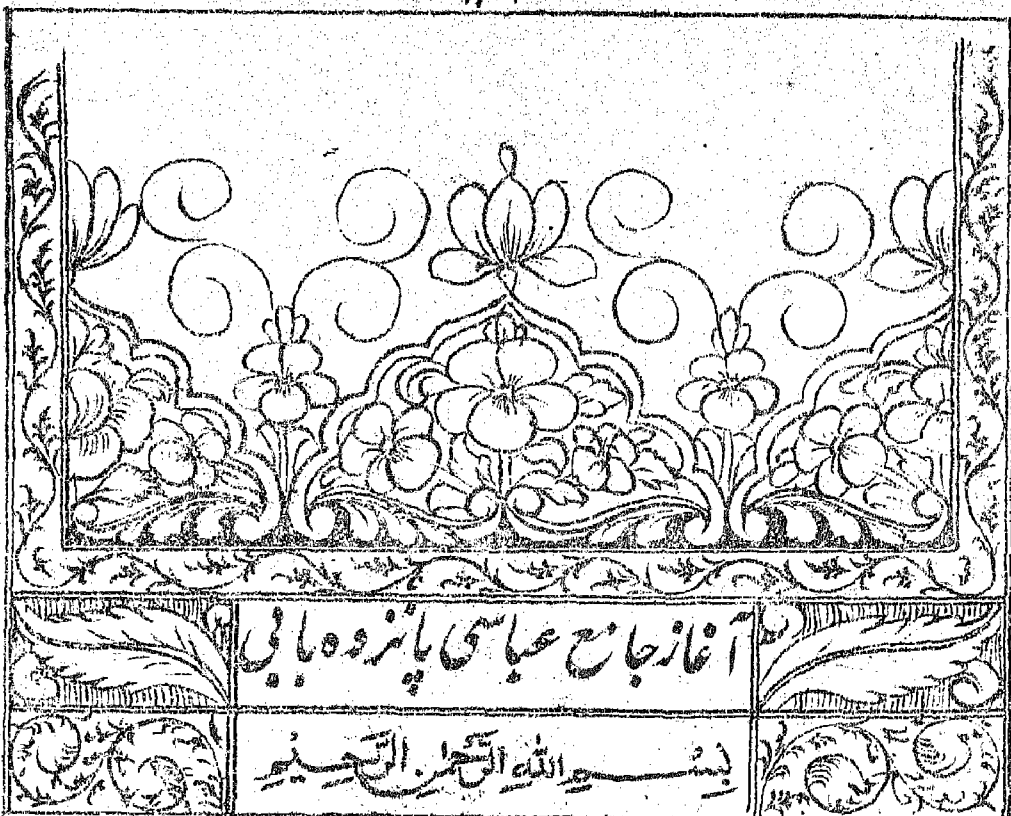 آغاز جامع عباسی پانزده بابی
بِسْمِ اللهِ الرَّحْمٰنِ الرَّحِيْمِ